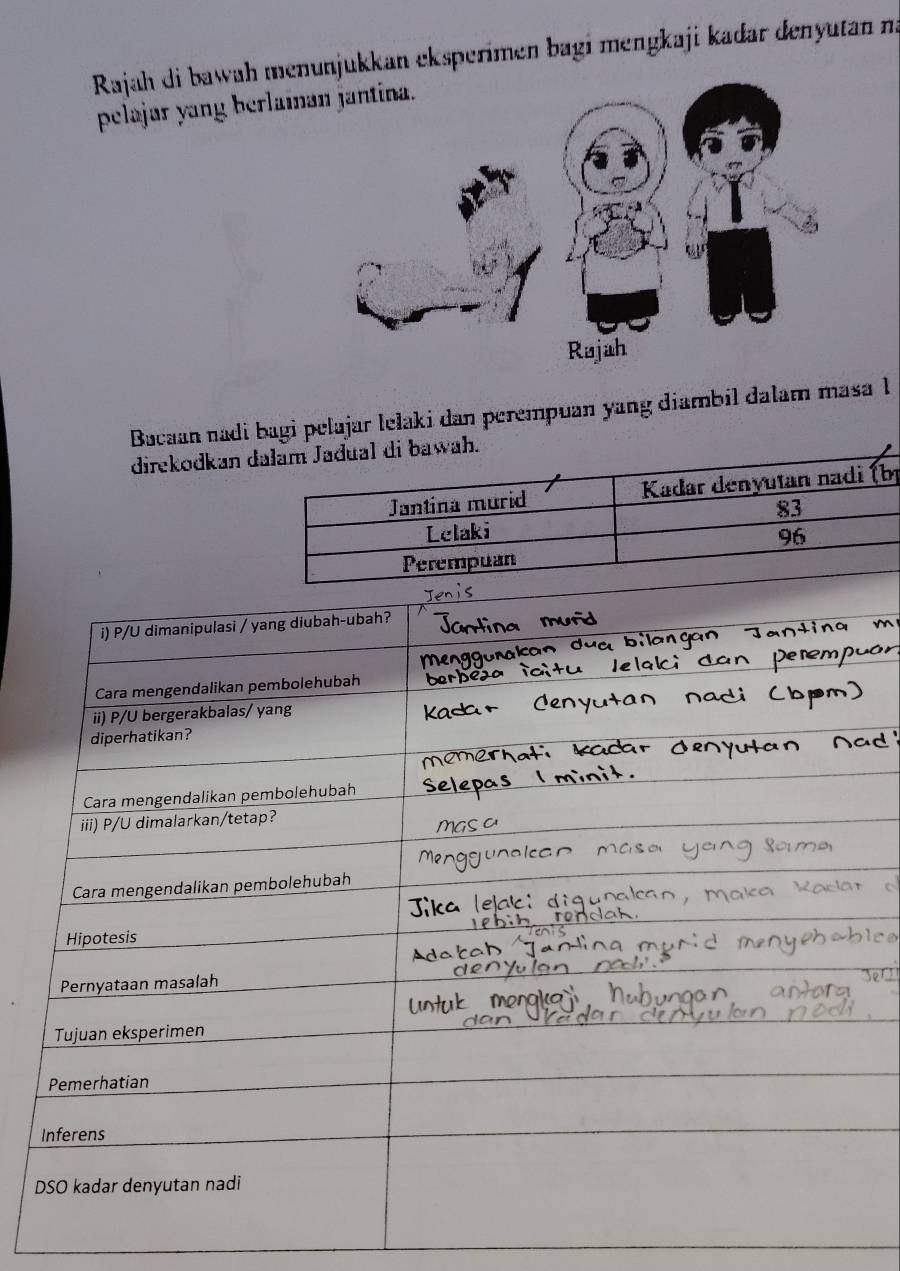 Rajah di bawah menunjukkan eksperimen bagi mengkaji kadar denyutan
pelajar yang berlainan jantina.
Rajah
Bacaan nadi bagi pelajar lelaki dan perempuan yang diambil dalam masa 1
direkodkan dalam Jadual di bawah.
Jantina murid Kadar denyutan nadi
Lelaki 83
Perempuan 96
Jenis
i) P/U dimanipulasi / yang diubah-ubah? ^ Jantina murid
menggunakan dua bilangan Jantina
Cara mengendalikan pembolehubah berbeza iaitu lelaki dan perempuan
ii) P/U bergerakbalas/ yang kadar denyutan nadi (bpm)
diperhatikan?
memerhati kadar denyutan nadi
Cara mengendalikan pembolehubah selepas 1 minit.
iii) P/U dimalarkan/tetap? masa
Menggunakan masa yang sama
Cara mengendalikan pembolehubah
Jika lelaki digunakan, maka kadar
Hipotesis lebih rendah.
Jenis
Adakah ^ Jantina murid menyebabkan
Pernyataan masalah denyutan nadi?
Untuk mengkaji hubungan antara
Tujuan eksperimen dan kadar denyutan nadi.
Pemerhatian
Inferens
DSO kadar denyutan nadi